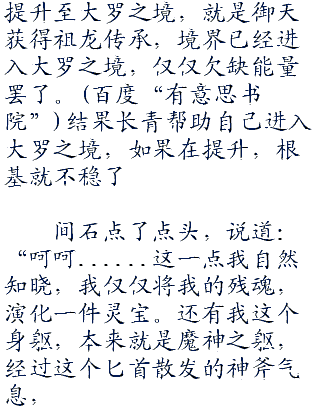 提升至大罗之境，就是御天
获得祖龙传承，境界已经进
入大罗之境，仅仅欠缺能量
罢了。(百度“有意思书
院”)结果长青帮助自己进入
大罗之境，如果在提升，根
基就不稳了
间石点了点头，说道：
“呵呵......这一点我自然
知晓，我仅仅将我的残魂，
演化一件灵宝。还有我这个
身躯，本来就是魔神之躯，
经过这个匕首散发的神斧气
息，